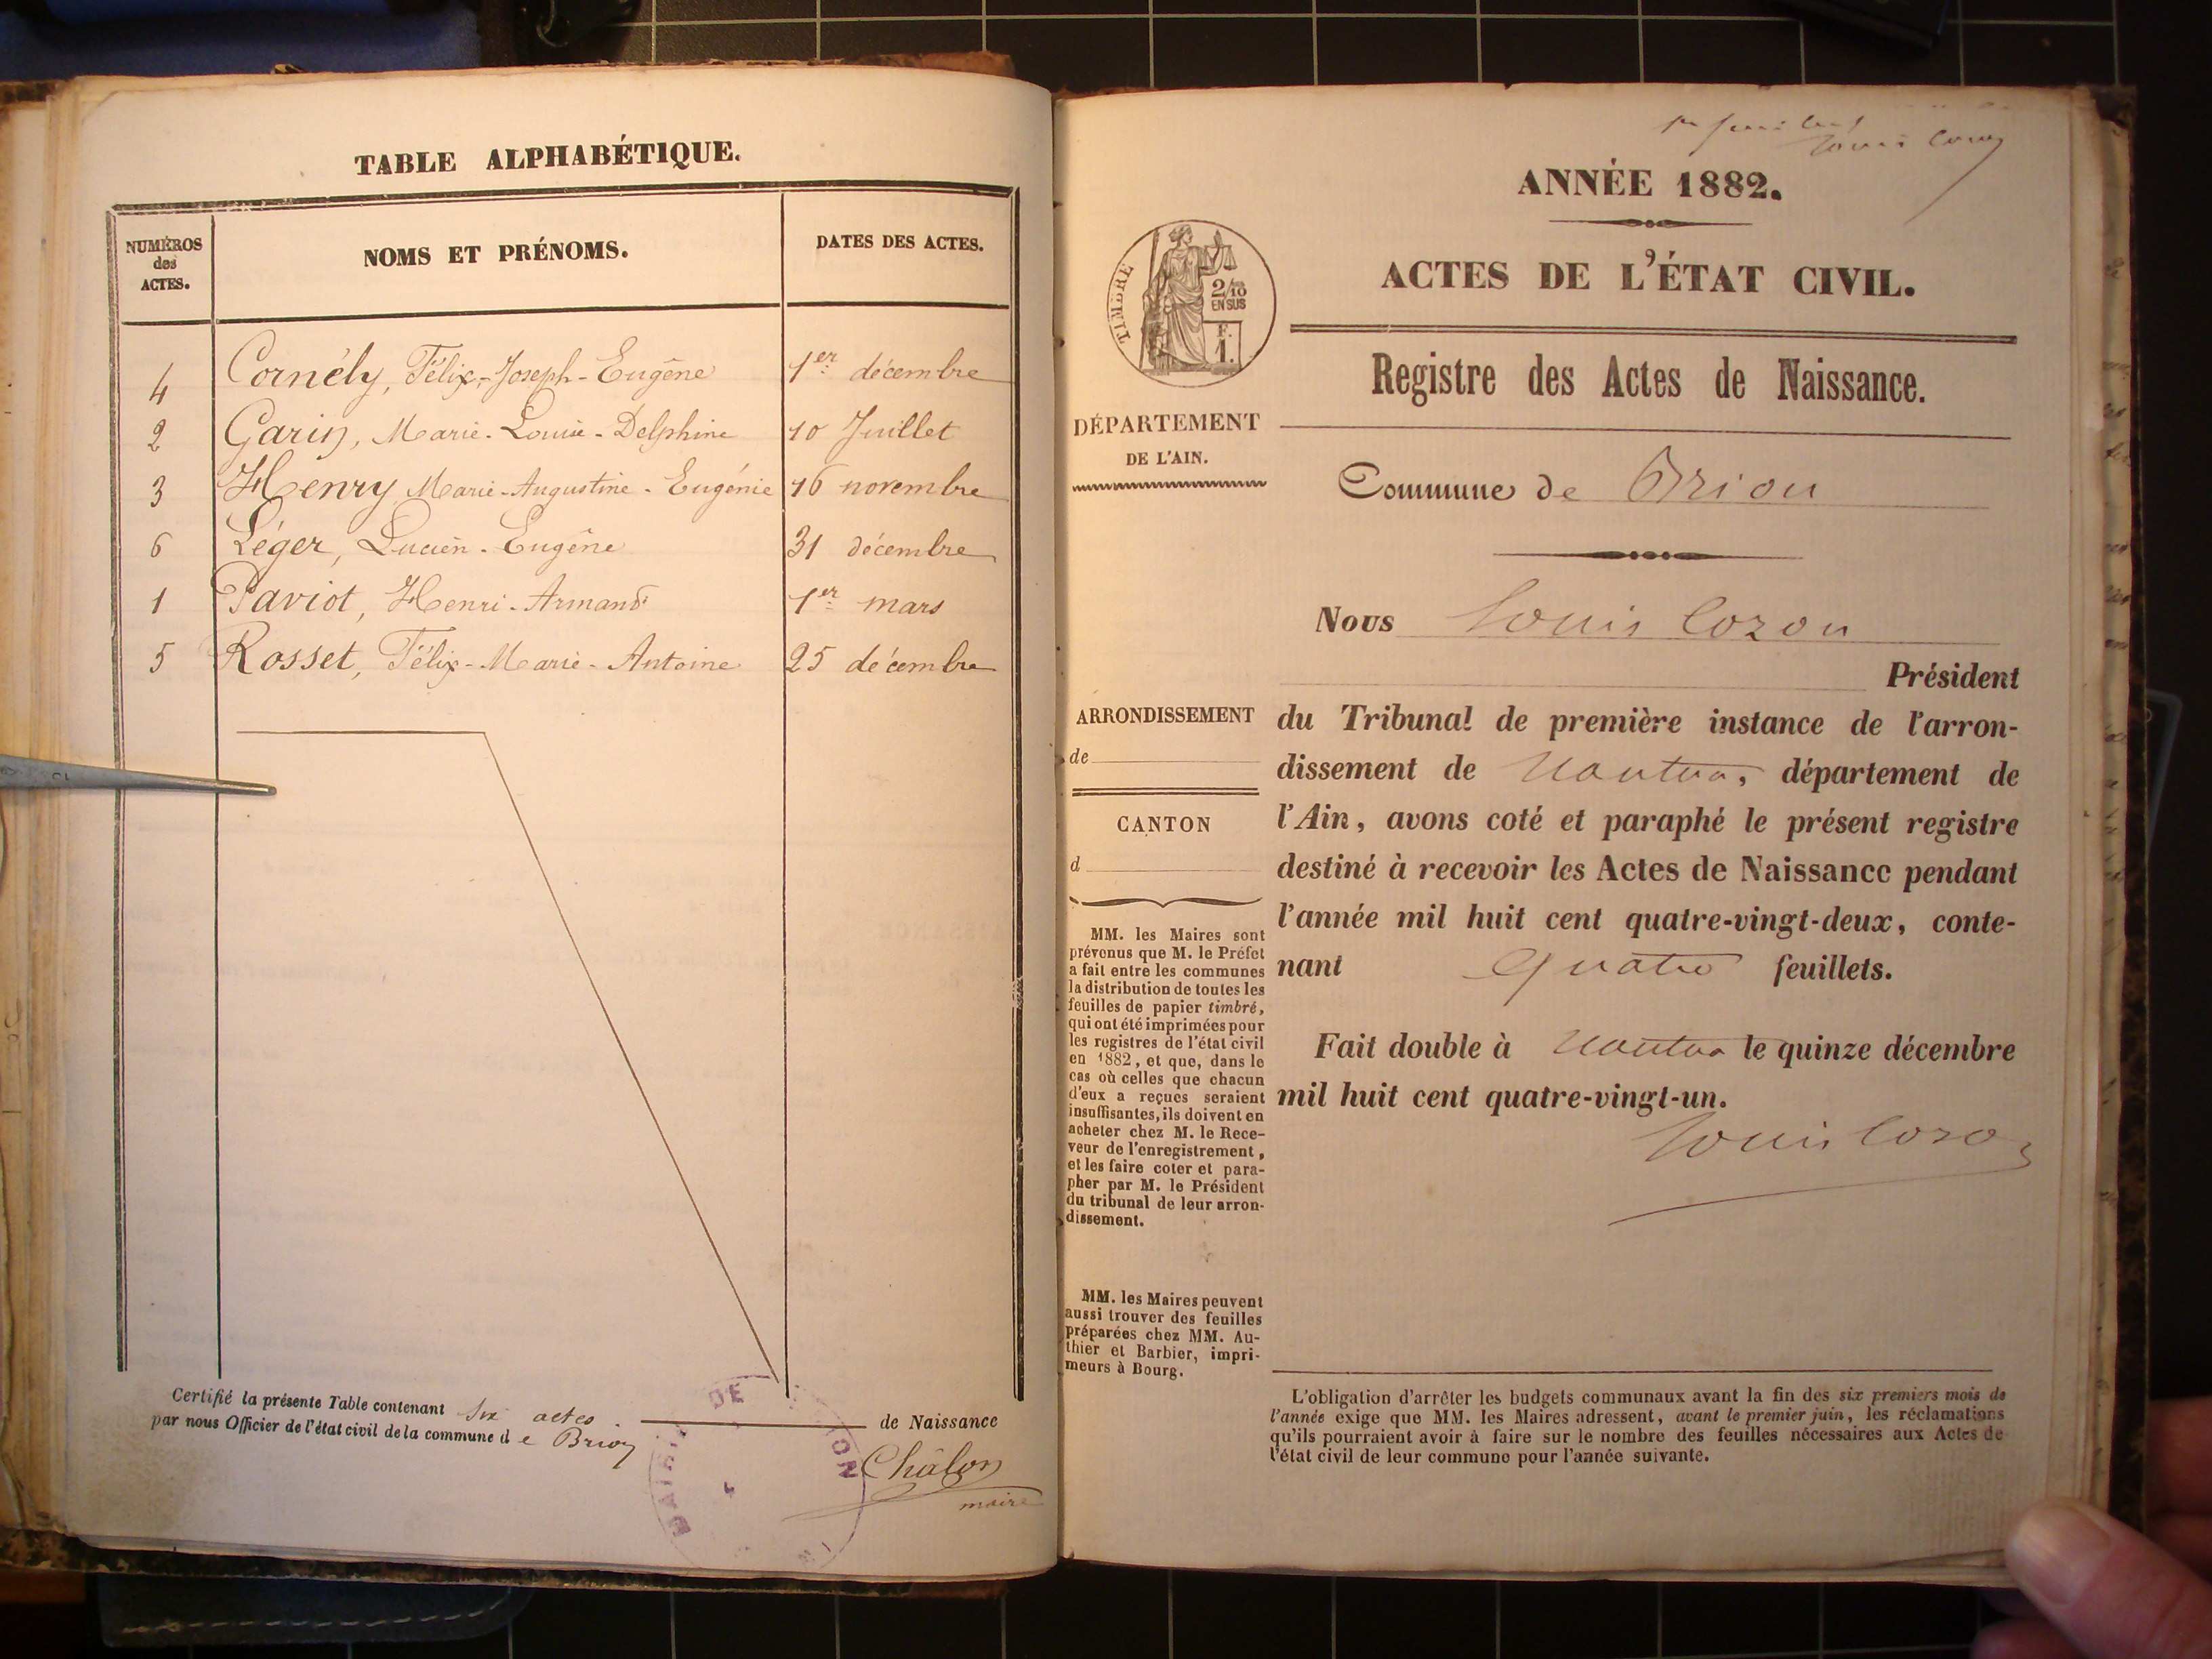 TABLE ALPHABÉTIQUE.
NUMÉROS
des
ACTES.
NOMS ET PRÉNOMS.
DATES DES ACTES.
4 Cornély, Félix-Joseph-Eugène 1er décembre
2 Garin, Marie-Louise-Delphine 10 Juillet
3 Henry Marie-Augustine-Eugénie 16 novembre
6 Léger, Lucien-Eugène 31 décembre
1 Paviot, Henri-Armand 1er mars
5 Rosset, Félix-Marie-Antoine 25 décembre
Certifié la présente Table contenant six actes de Naissance
par nous Officier de l'état civil de la commune d e Brion
MAIRIE DE
ION
Châlon
maire
Louis Cozon
ANNÉE 1882.
TIMBRE
2/10
EN SUS
F.
1.
ACTES DE L'ÉTAT CIVIL.
Registre des Actes de Naissance.
DÉPARTEMENT
DE L'AIN.
Commune de Brion
Nous Louis Cozon
Président
du Tribunal de première instance de l'arron-
dissement de Nantua, département de
l'Ain, avons coté et paraphé le présent registre
destiné à recevoir les Actes de Naissance pendant
l'année mil huit cent quatre-vingt-deux, conte-
nant quatre feuillets.
Fait double à Nantua le quinze décembre
mil huit cent quatre-vingt-un.
Louis Cozon
ARRONDISSEMENT
de
CANTON
d
MM. les Maires sont
prévenus que M. le Préfet
a fait entre les communes
la distribution de toutes les
feuilles de papier timbré,
qui ont été imprimées pour
les registres de l'état civil
en 1882, et que, dans le
cas où celles que chacun
d'eux a reçues seraient
insuffisantes, ils doivent en
acheter chez M. le Rece-
veur de l'enregistrement,
et les faire coter et para-
pher par M. le Président
du tribunal de leur arron-
dissement.
MM. les Maires peuvent
aussi trouver des feuilles
préparées chez MM. Au-
thier et Barbier, impri-
meurs à Bourg.
L'obligation d'arrêter les budgets communaux avant la fin des six premiers mois de
l'année exige que MM. les Maires adressent, avant le premier juin, les réclamations
qu'ils pourraient avoir à faire sur le nombre des feuilles nécessaires aux Actes de
l'état civil de leur commune pour l'année suivante.